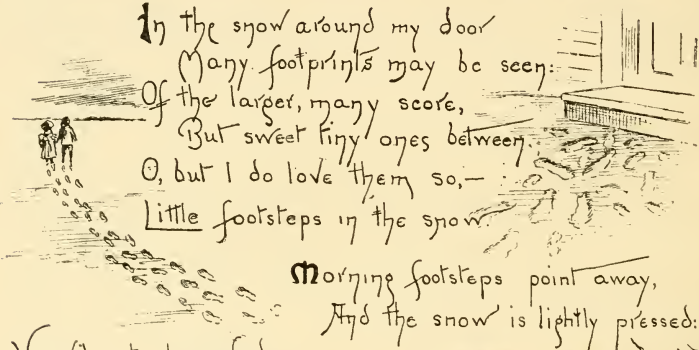 In the snow around my door
Many footprints may be seen:
Of the larger, many score,
But sweet tiny ones between.
O, but I do love them so,—
Little footsteps in the snow.
Morning footsteps point away,
And the snow is lightly pressed: